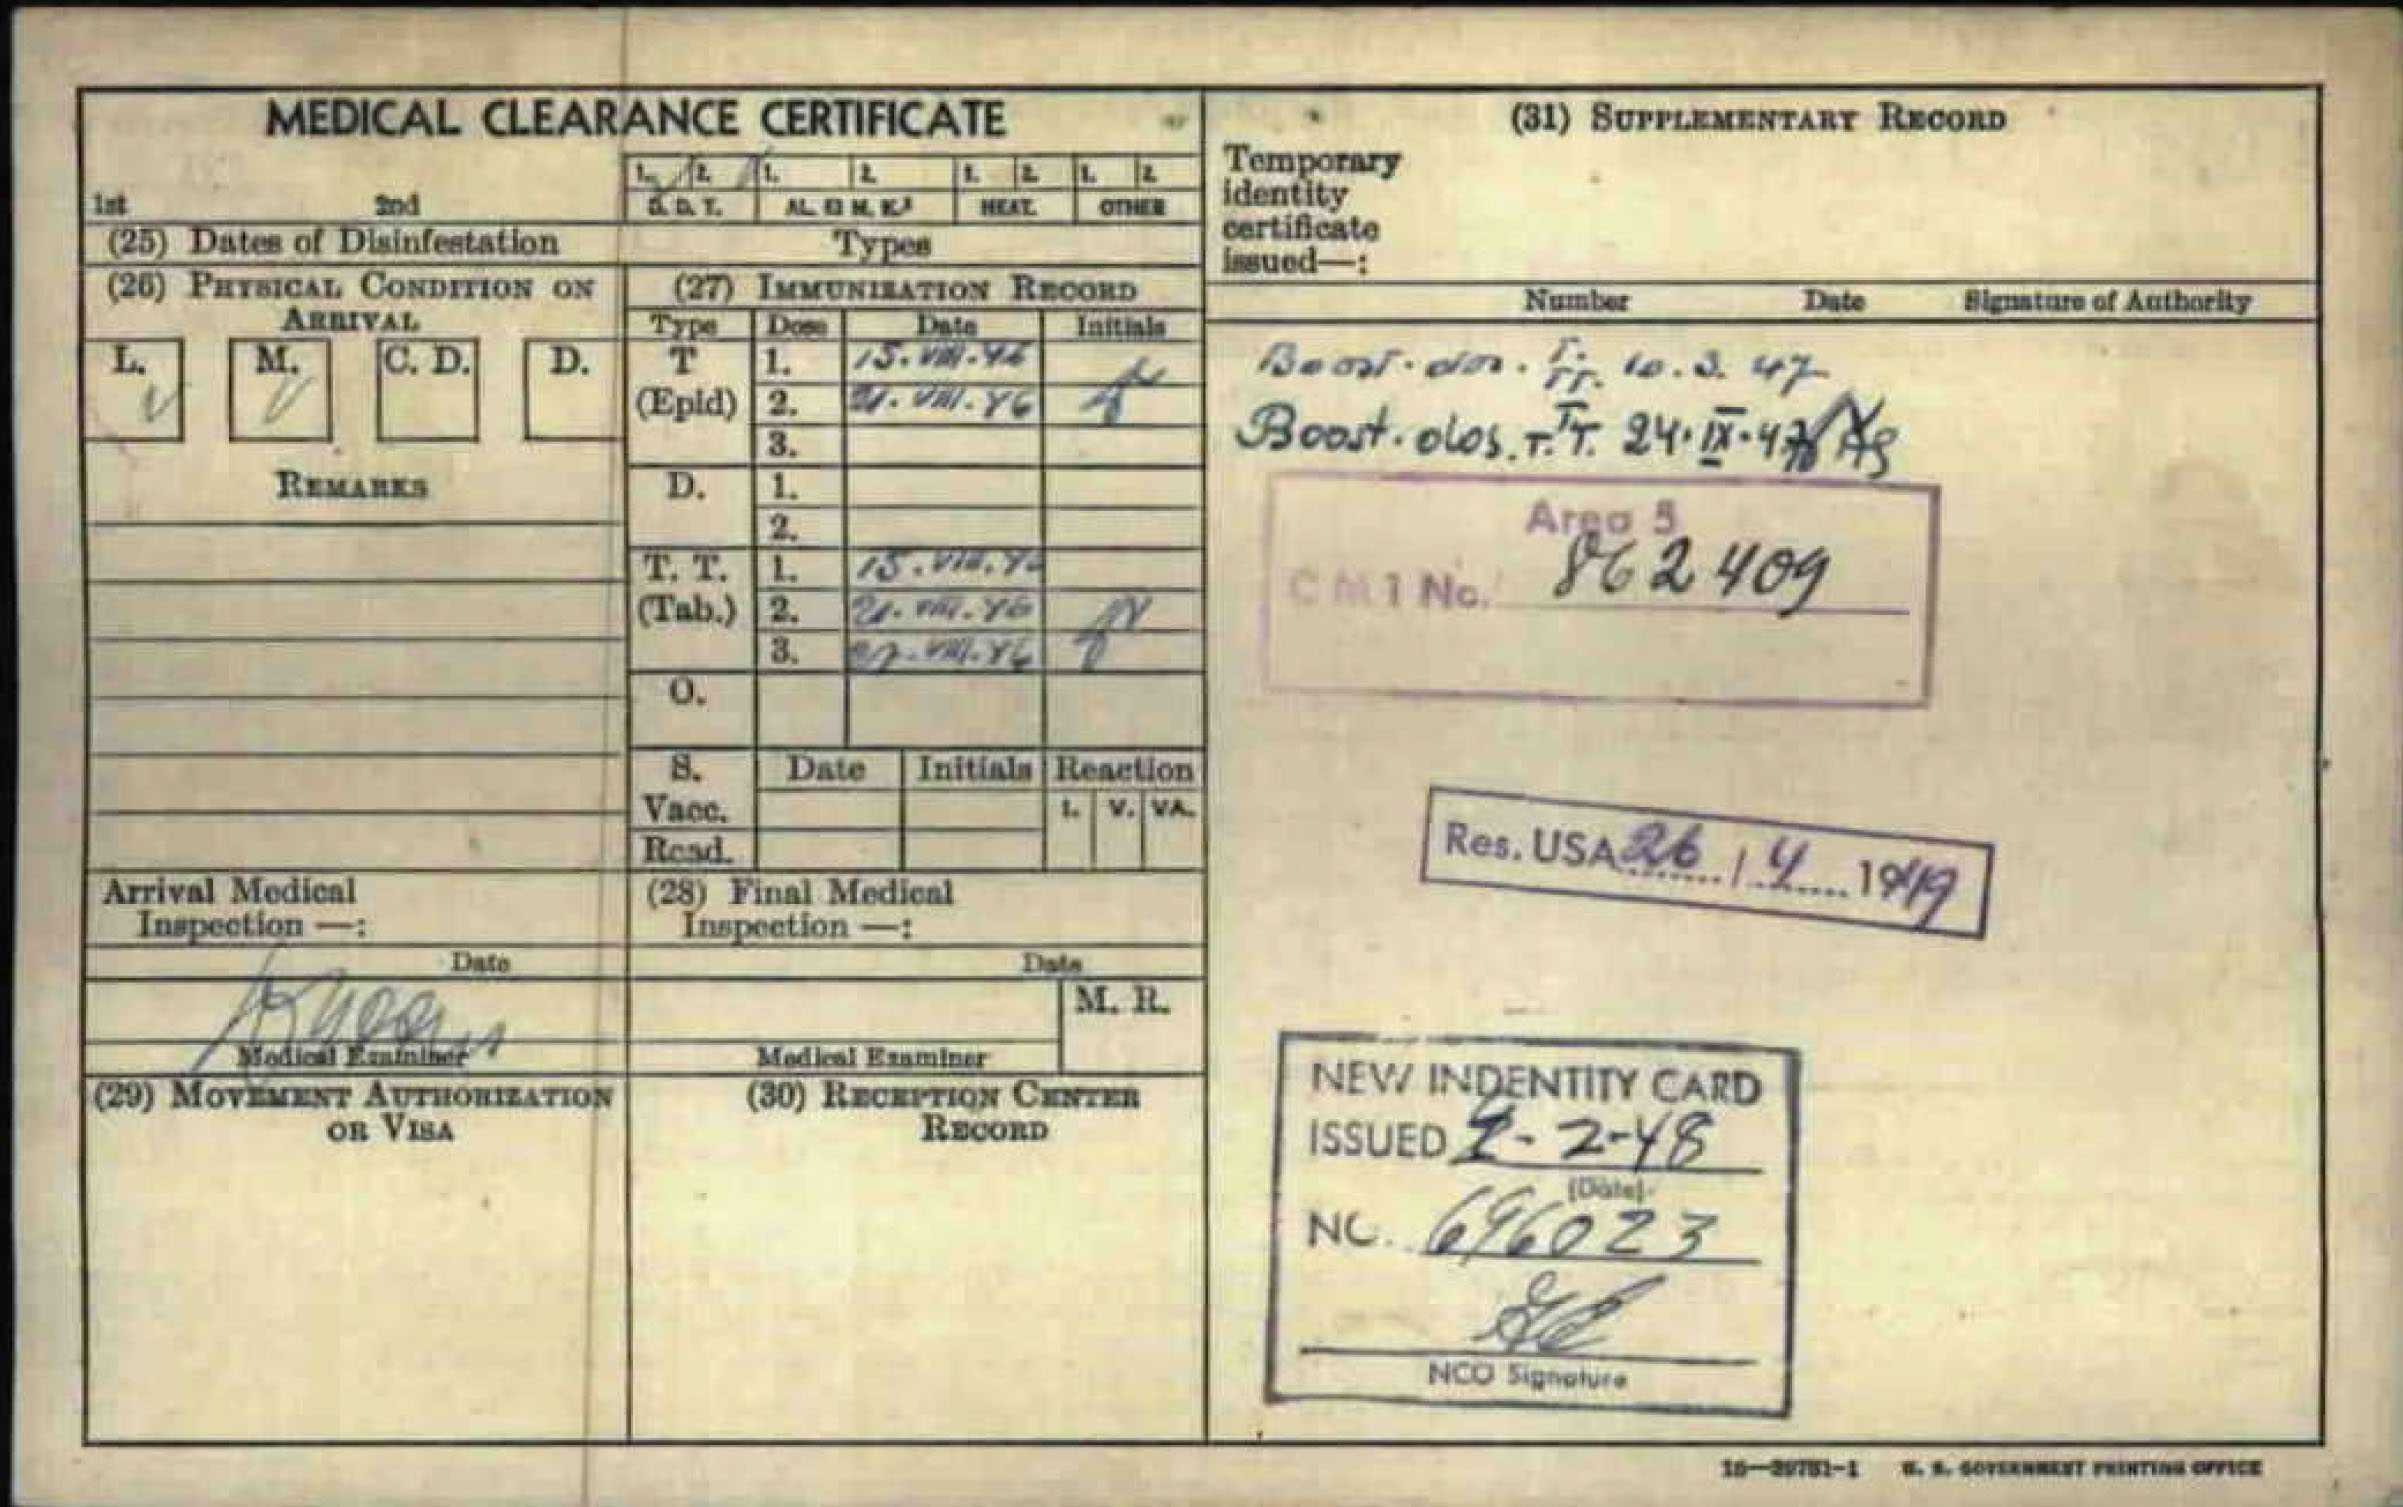 MEDICAL CLEARANCE CERTIFICATE
1. 2. 1. 2. 1. 2. 1. 2.
1st 2nd D. D. T. HEAT. OTHER
(25) Dates of Disinfestation Types
(26) PHYSICAL CONDITION ON ARRIVAL
L. M. C. D. D.
REMARKS
(27) IMMUNIZATION RECORD
Type Dose Date Initials
T 1. 15.VIII.46
(Epid) 2. 21.VIII.46
3.
D. 1.
2.
T. T. 1. 15.VIII.46
(Tab.) 2. 21.VIII.46
3. 27.VIII.46
O.
S. Date Initials Reaction
Vacc. I. V. VA.
Read.
Arrival Medical
Inspection —:
Date
Medical Examiner
(28) Final Medical
Inspection —:
Date
M. R.
Medical Examiner
(29) MOVEMENT AUTHORIZATION
OR VISA
(30) RECEPTION CENTER
RECORD
(31) SUPPLEMENTARY RECORD
Temporary
identity
certificate
issued—:
Number Date Signature of Authority
Boost. dos. 10.3.47
Boost. dos. T.T. 24.IX.47
Area 5
C M 1 No. 862409
Res. USA 26 / 4 1949
NEW INDENTITY CARD
ISSUED 2-48
(Date)
NO. 696023
NCO Signature
16—29781-1 U. S. GOVERNMENT PRINTING OFFICE